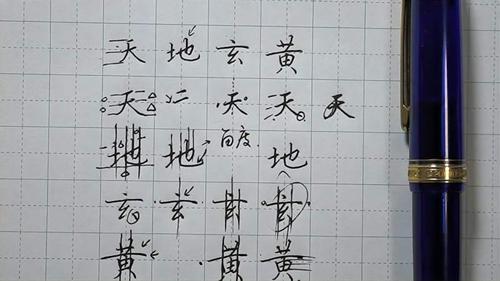 天地玄黄
天 二 天 天 天
地 地 百度 地
玄 玄
黄 黄 黄